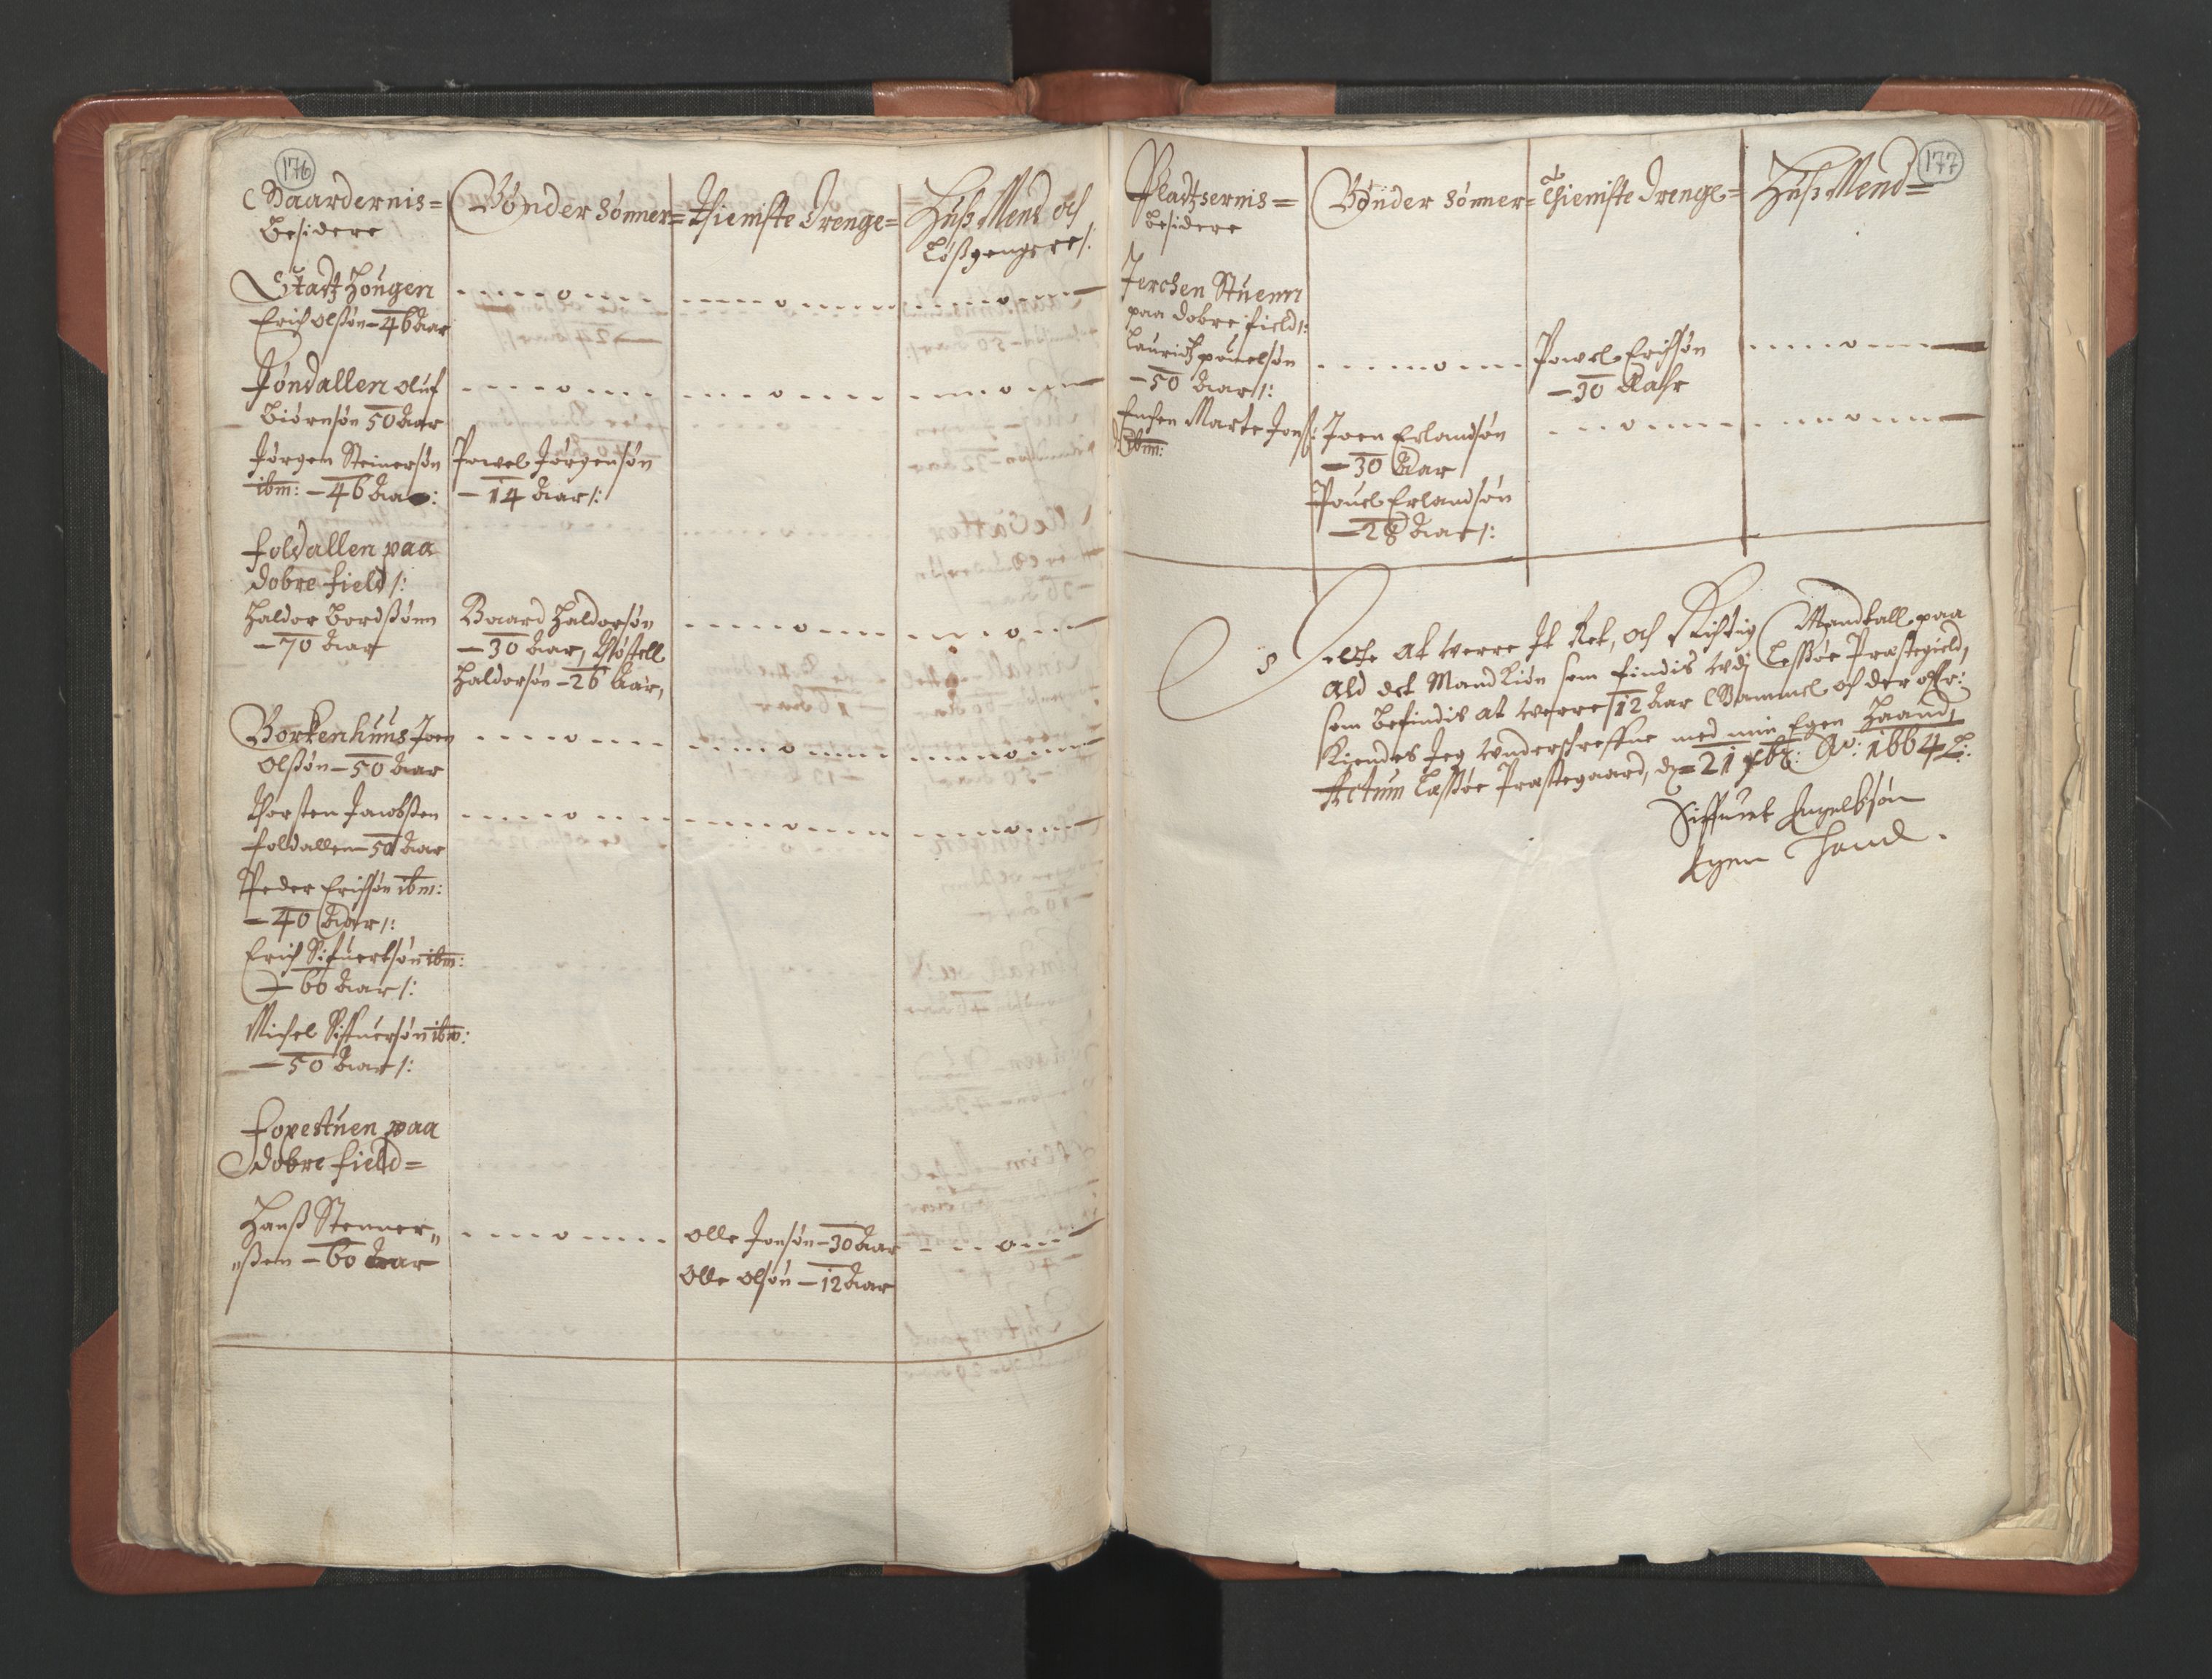 176
Gaardernis=
Besidere
Bønder Sønner=
Thieniste Drenge=
Huß Mend och
Løßgengere /:
Erich Olßøn - 46 Aar
Jøndallen Oluf
Biørnsøn 50 Aar
Jørgen Steinersøn
ibm: - 46 Aar:
Powel Jørgensøn
- 14 Aar /:
Foldallen paa
Dobre field /:
Haldor Bordsønn
- 70 Aar
Baard Haldorsøn
- 30 Aar,
Haldorsøn - 26 Aar,
Borkenhuus Joen
Olßøn - 50 Aar
Thorsten Jacobsen
Foldallen - 50 Aar
Peder Erichsøn ibm:
- 40 Aar /:
Erich Sifuertsøn ibm:
- 60 Aar /:
Michel Siffuersøn ibm:
- 50 Aar /:
Foxestuen paa
Dobre field =
Hanß Stenner„
„ßen - 60 Aar
Olle Jonsøn - 30 Aar
Olle Olsøn - 12 Aar
177
Pladtzernis =
Besidere
Bønder Sønner =
Thieniste Drenge =
Huß Mend =
Jerchen Stuenn
paa Dobre field /:
Lauridtz Pouelsøn
- 50 Aar /:
Powel Erichsøn
- 30 Aahr
Enchen Marte Jonß:
ibm:
Joen Erlandsøn
- 30 Aar
Pouel Erlandsøn
- 28 Aar /:
at werre It Ret, och Richtig Mandtall paa
Ald det Mand Kiøn som findis udj Lessøe Præstegield,
som befindis at werre 12 Aar Gammel och der offr:
Kiendes Jeg underschreffne med min Egen Haand,
Actum Lessøe Præstegaard, d = 21 Ao: 1664
Siffuert Engelbsøn
Egen Haand.